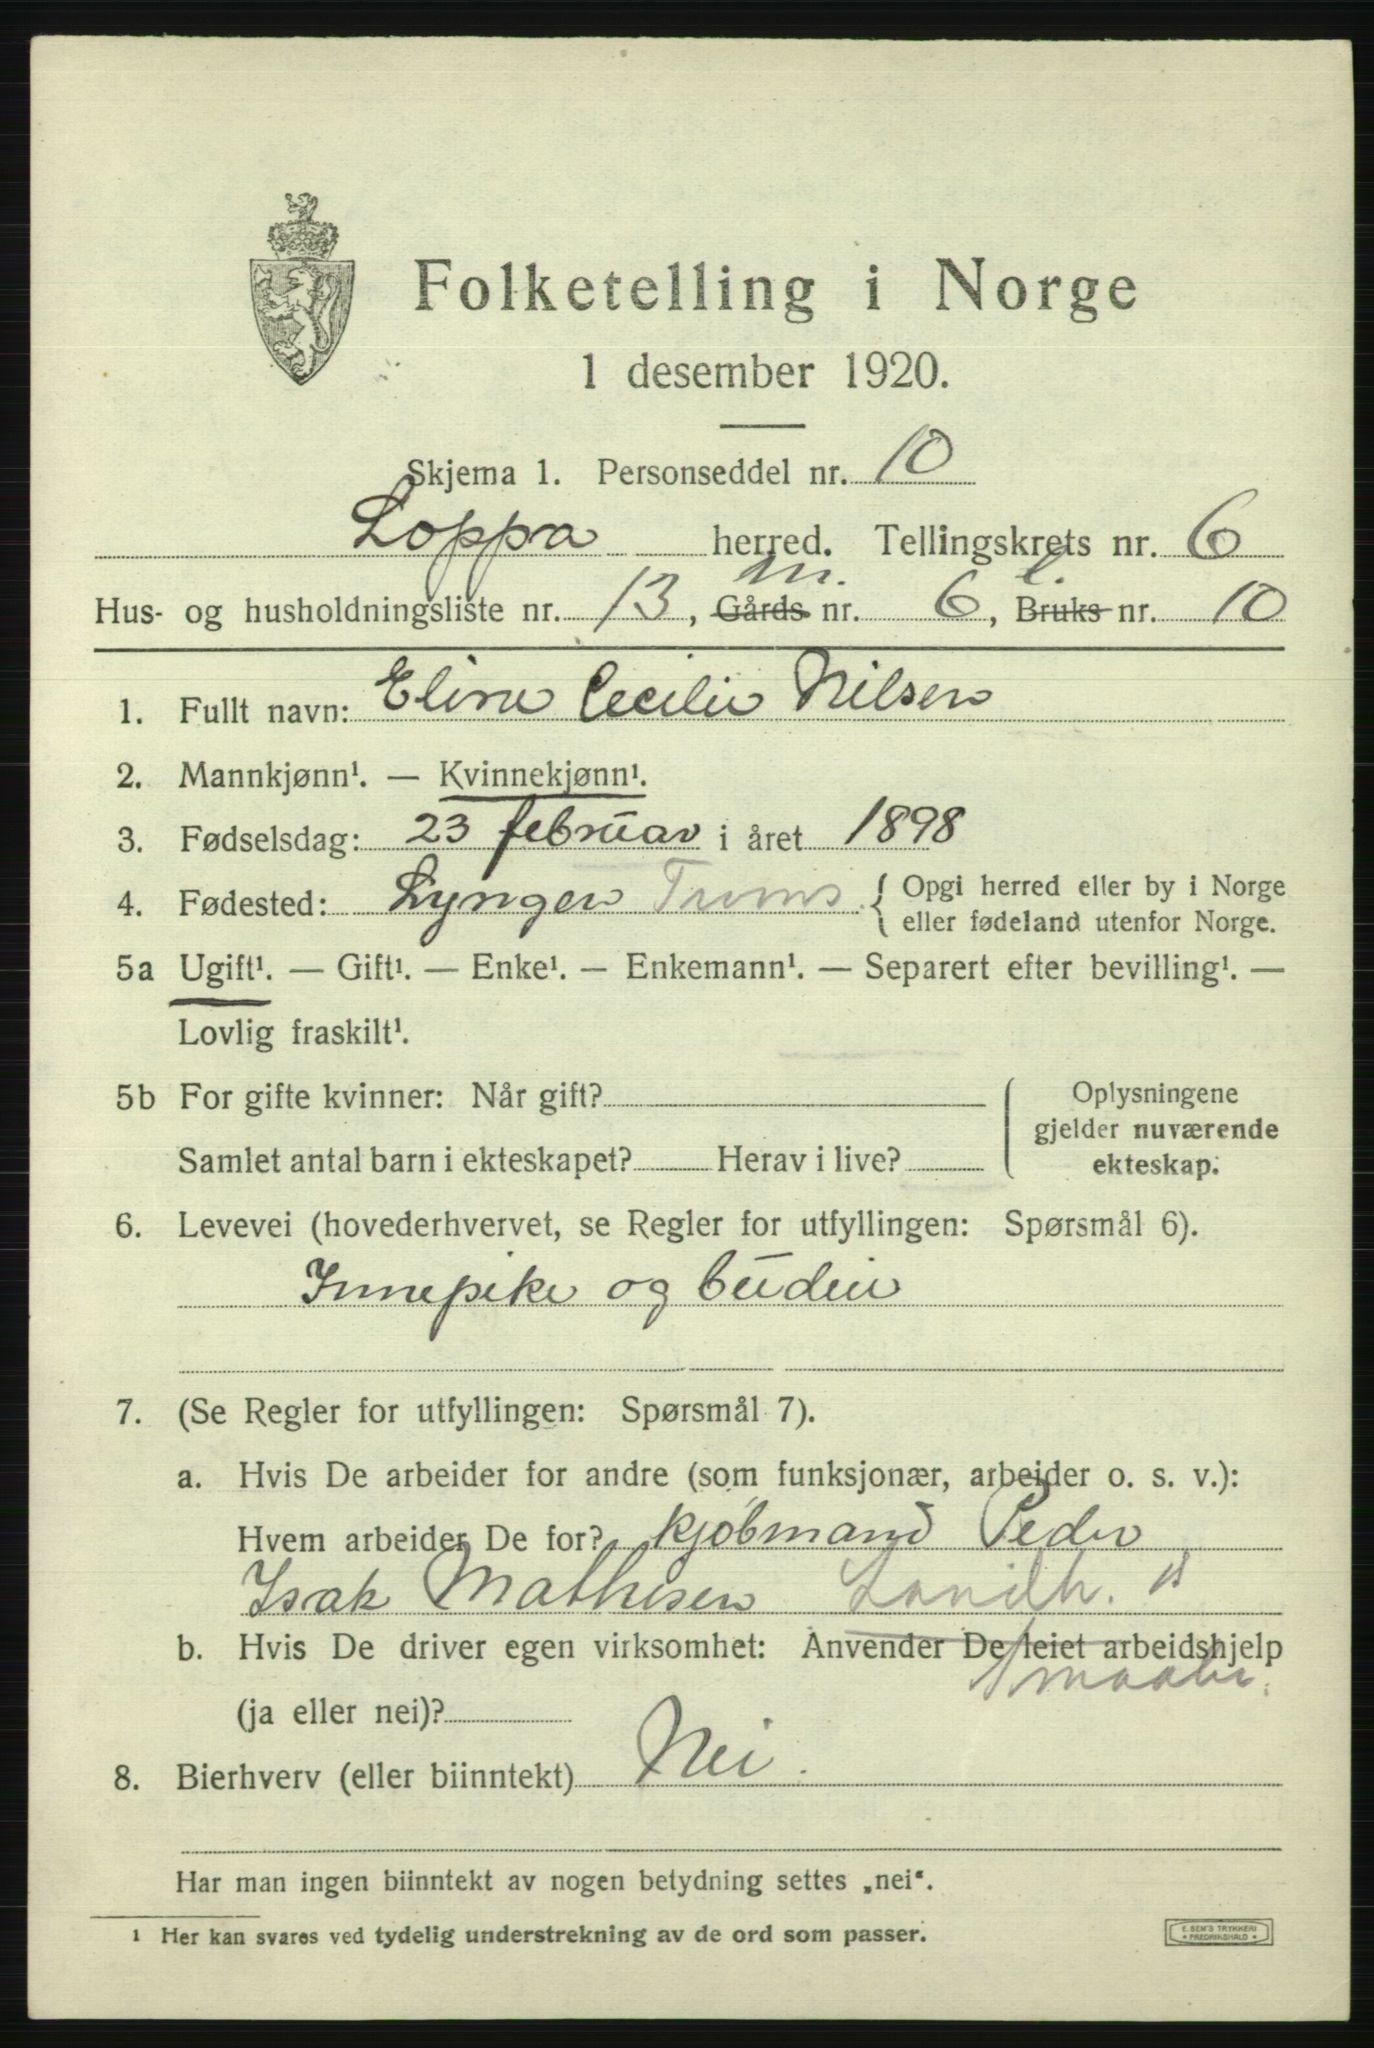 Folketelling i Norge
1 desember 1920.
Skjema 1. Personseddel nr. 10
Loppa herred. Tellingskrets nr. 6
m. l.
Hus- og husholdningsliste nr. 13, Gårds nr. 6, Bruks nr. 10
1. Fullt navn: Eline Cecilie Nilsen
2. Mannkjønn¹. — Kvinnekjønn¹.
3. Fødselsdag: 23 februar i året 1898
4. Fødested: Lyngen Troms { Opgi herred eller by i Norge
eller fødeland utenfor Norge.
5a Ugift¹. — Gift¹. — Enke¹. — Enkemann¹. — Separert efter bevilling¹. —
Lovlig fraskilt¹.
5b For gifte kvinner: Når gift?
Samlet antal barn i ekteskapet? Herav i live?
Oplysningene
gjelder nuværende
ekteskap.
6. Levevei (hovederhvervet, se Regler for utfyllingen: Spørsmål 6).
Innepike og budeie
7. (Se Regler for utfyllingen: Spørsmål 7).
a. Hvis De arbeider for andre (som funksjonær, arbeider o. s. v.):
Hvem arbeider De for? kjøbmand Peder
Isak Mathisen Landh.
b. Hvis De driver egen virksomhet: Anvender De leiet arbeidshjelp
(ja eller nei)?
8. Bierhverv (eller biinntekt) Nei.
Har man ingen biinntekt av nogen betydning settes „nei“.
1 Her kan svares ved tydelig understrekning av de ord som passer.
E. SEM'S TRYKKERI
FREDRIKSHALD